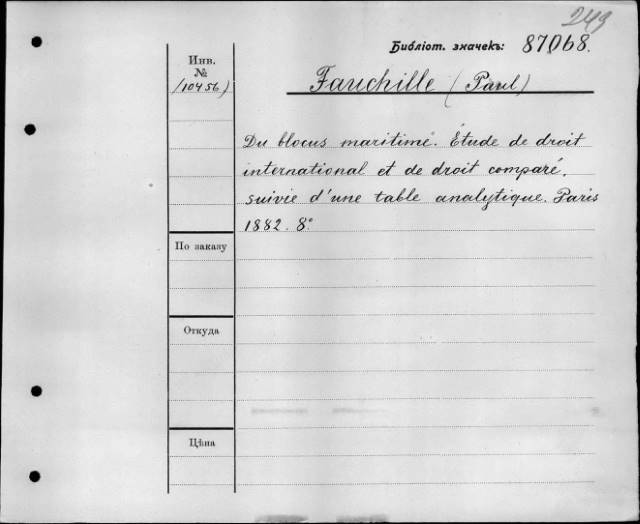 249
Библіот. значекъ: 87068.
Инв.
№
(10456)
Fauchille (Paul)
Du blocus maritime. Étude de droit
international et de droit comparé.
suivie d'une table analytique. Paris
1882. 8°
По заказу
Откуда
Цѣна